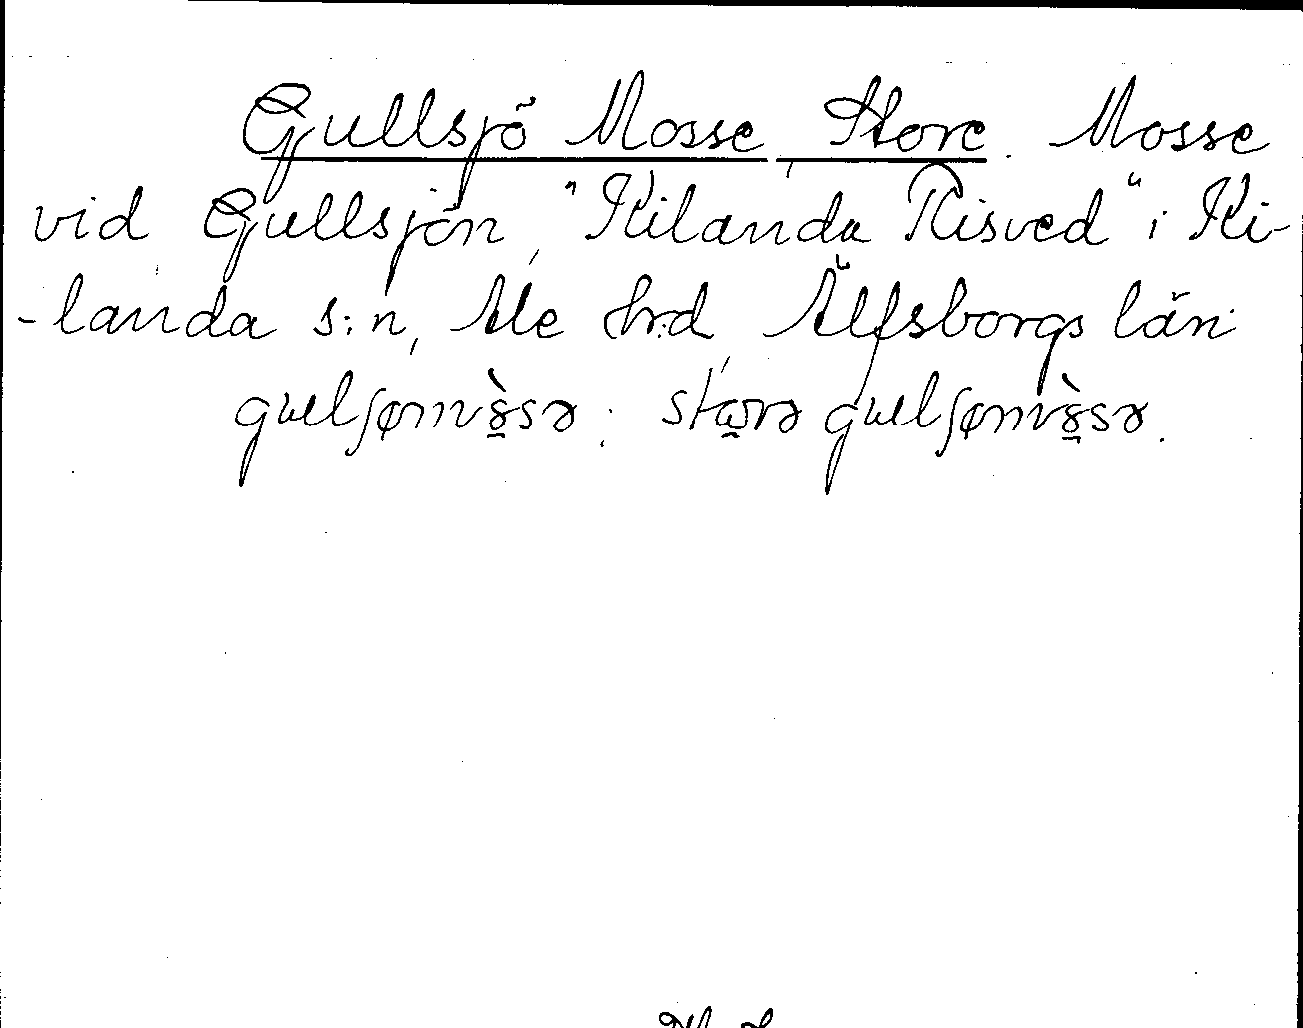 Gullsjö Mosse, Store. Mosse
vid Gullsjön, "Kilanda Risved" i Ki-
-landa s:n, Ale hrd, Älfsborgs län
gulʃømɤ̀sə; stɷrə gulʃømɤ̀sə.